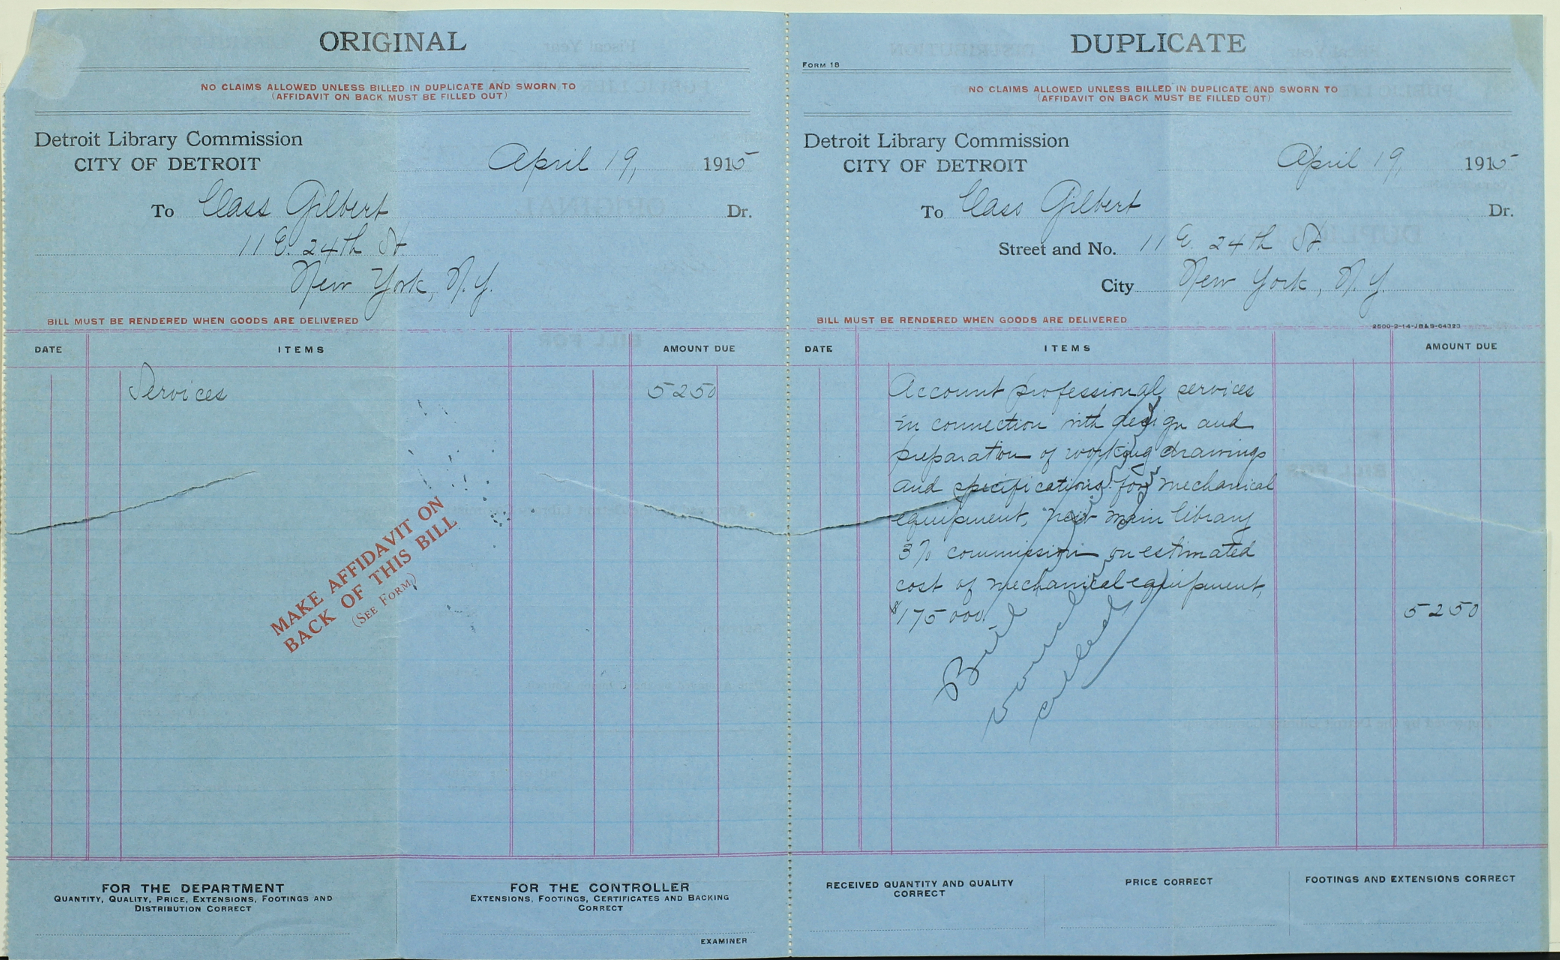 ORIGINAL
NO CLAIMS ALLOWED UNLESS BILLED IN DUPLICATE AND SWORN TO
(AFFIDAVIT ON BACK MUST BE FILLED OUT)
Detroit Library Commission
CITY OF DETROIT
April 19, 1915
To Cass Gilbert Dr.
11 E. 24th St
New York, N.Y.
BILL MUST BE RENDERED WHEN GOODS ARE DELIVERED
DATE ITEMS AMOUNT DUE
Services 5250
MAKE AFFIDAVIT ON
BACK OF THIS BILL
(SEE FORM)
FOR THE DEPARTMENT
QUANTITY, QUALITY, PRICE, EXTENSIONS, FOOTINGS AND
DISTRIBUTION CORRECT
FOR THE CONTROLLER
EXTENSIONS, FOOTINGS, CERTIFICATES AND BACKING
CORRECT
EXAMINER
DUPLICATE
FORM 18
NO CLAIMS ALLOWED UNLESS BILLED IN DUPLICATE AND SWORN TO
(AFFIDAVIT ON BACK MUST BE FILLED OUT)
Detroit Library Commission
CITY OF DETROIT
April 19, 1915
To Cass Gilbert Dr.
Street and No. 11 E. 24th St.
City New York, N.Y.
BILL MUST BE RENDERED WHEN GOODS ARE DELIVERED
2500-2-14-JB&S-64323
DATE ITEMS AMOUNT DUE
Account professional services
in connection with design and
preparation of working drawings
and specifications for mechanical
equipment, new main library
3% commission on estimated
cost of mechanical equipment,
$175 000. 5250
Bill
RECEIVED QUANTITY AND QUALITY
CORRECT
PRICE CORRECT
FOOTINGS AND EXTENSIONS CORRECT